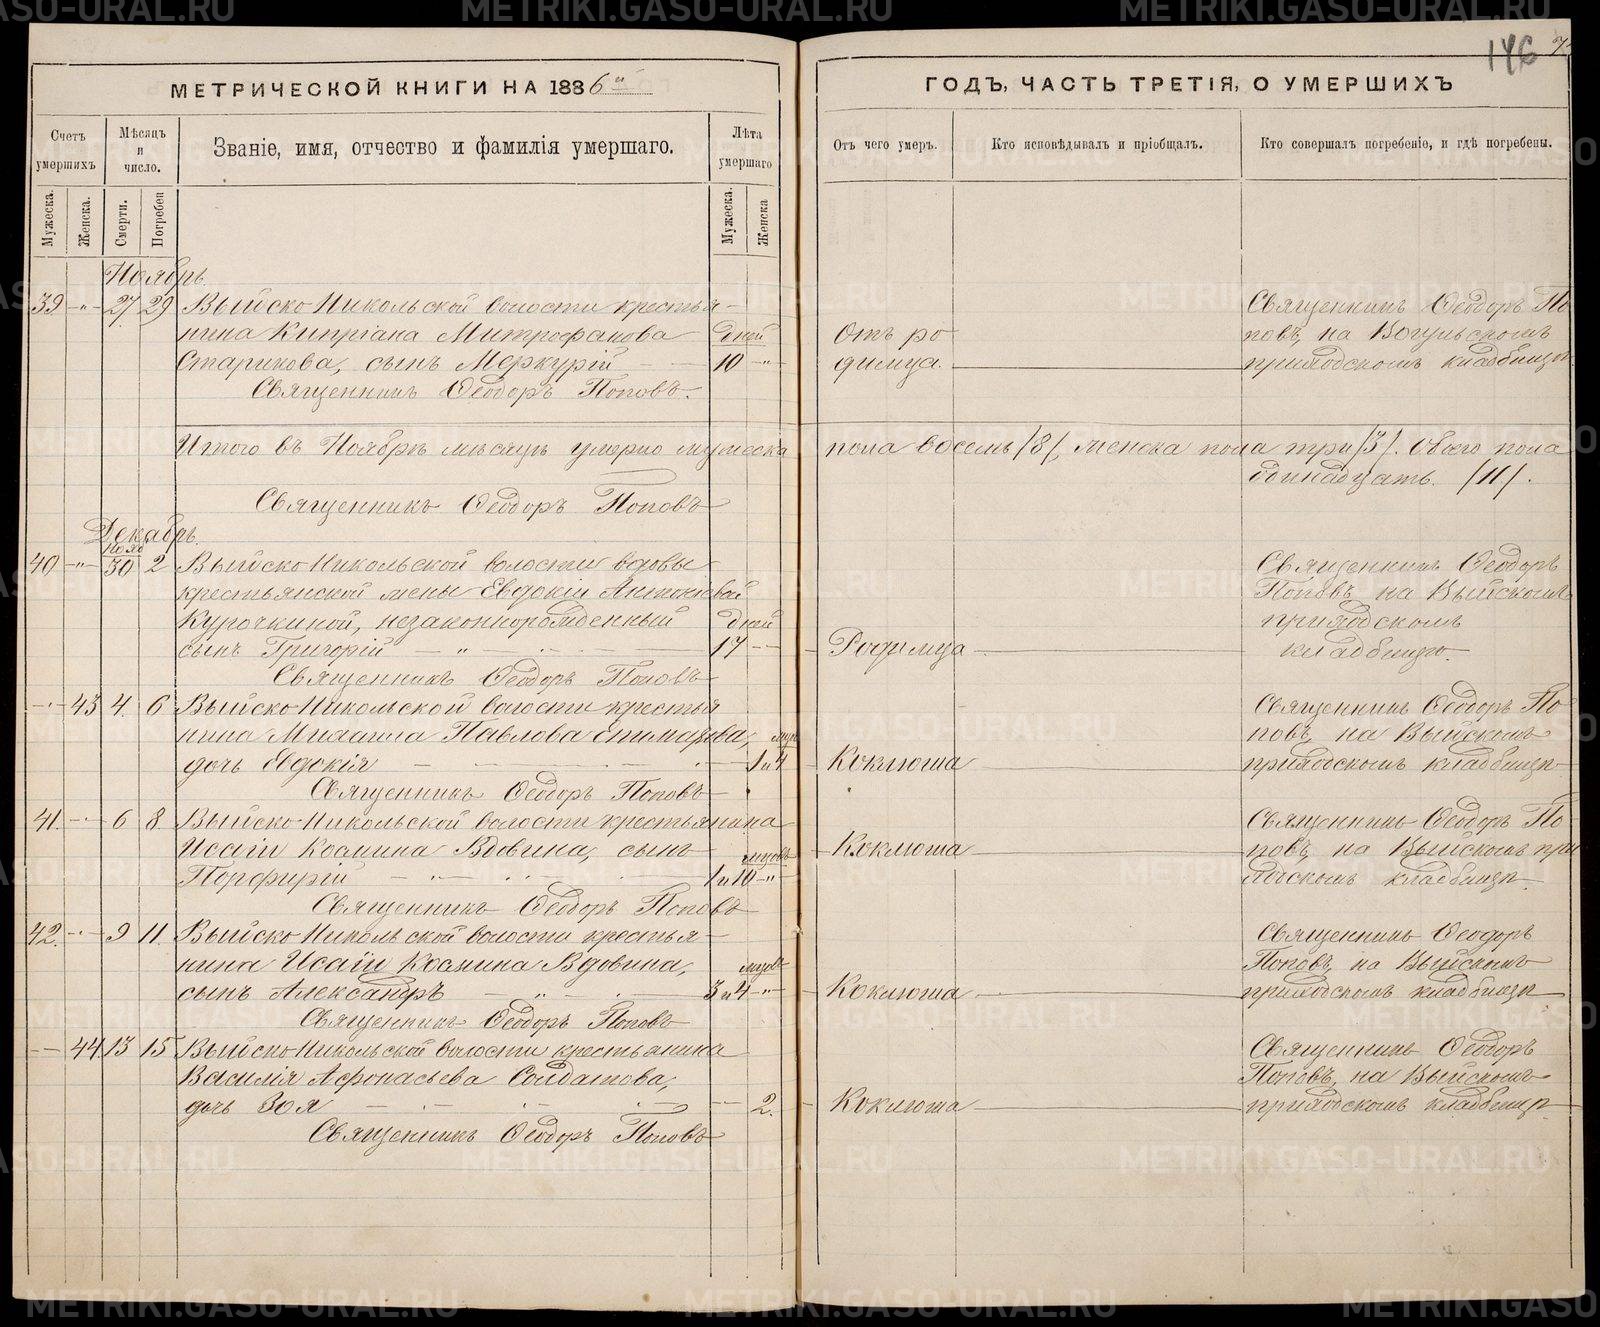 146
МЕТРИЧЕСКОЙ КНИГИ НА 1886 й
ГОДЪ, ЧАСТЬ ТРЕТІЯ, О УМЕРШИХЪ
Счетъ умершихъ
Мѣсяцъ и число.
Званіе, имя, отчество и фамилія умершаго.
Лѣта умершаго
Отъ чего умеръ.
Кто исповѣдывалъ и пріобщалъ.
Кто совершалъ погребеніе, и гдѣ погребены.
Мужеска.
Женска.
Смерти.
Погребен
Мужеска.
Женска
Ноябрь.
39 -"- 27 29 Выйско Никольской волости крестья-
нина Кипріана Митрофанова
дней
Старикова, сынъ Меркурій
10 -"-
Священникъ Ѳеодоръ Поповъ.
Отъ ро
димца.
Священникъ Ѳеодоръ По
повъ, на Вогульскомъ
приходскомъ кладбищѣ.
Итого въ Ноябрѣ мѣсяцѣ умерло мужеска
пола восемь /8/, женска пола три /3/. Обоего пола
одинадцать. /11/.
Священникъ Ѳеодоръ Поповъ
Декабрь.
Нояб
40 -"- 30 2 Выйско Никольской волости вдовы
крестьянской жены Евдокіи Антоніевой
Курочкиной, незаконнорожденный
дней
сынъ Григорій - " -
17 --
Священникъ Ѳеодоръ Поповъ
Родимца
Священникъ Ѳеодоръ
Поповъ на Выйскомъ
приходскомъ
кладбищѣ.
-"- 43 4. 6 Выйско Никольской волости крестья
нина Михаила Павлова
дочь Евдокія
1 и 4
Священникъ Ѳеодоръ Поповъ
Коклюша
Священникъ Ѳеодоръ По
повъ, на Выйскомъ
приходскомъ кладбищѣ
41. -"- 6 8. Выйско Никольской волости крестьянина
Исаіи Космина Вдовина, сынъ
мцовъ
Порфирій - " -
1 и 10 -"-
Священникъ Ѳеодоръ Поповъ
Коклюша
Священникъ Ѳеодоръ По-
повъ, на Выйскомъ при
ходскомъ кладбищѣ.
42. -"- 9 11. Выйско Никольской волости крестья-
нина Исаіи Космина Вдовина,
мцовъ
сынъ Александръ - " -
3 и 4 -"-
Священникъ Ѳеодоръ Поповъ
Коклюша
Священникъ Ѳеодоръ
Поповъ, на Выйскомъ
приходскомъ кладбищѣ
-- 44 13 15 Выйско Никольской волости крестьянина
Василія Аѳонасьева Солдатова,
дочь Зоя
-- 2.
Священникъ Ѳеодоръ Поповъ
Коклюша
Священникъ Ѳеодоръ
Поповъ, на Выйскомъ
приходскомъ кладбищѣ
METRIKI.GASO-URAL.RU